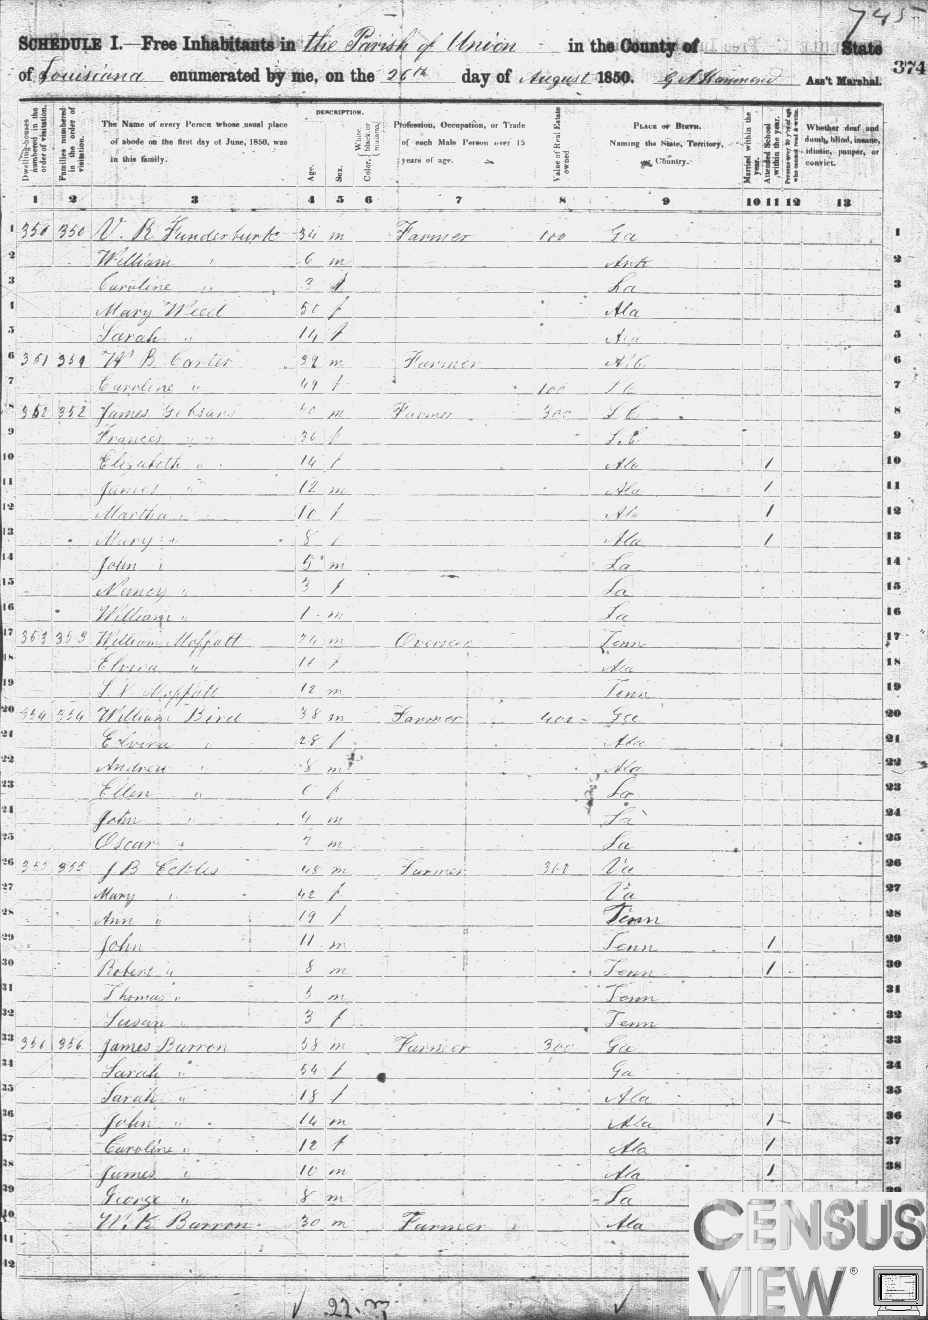 745
SCHEDULE I.—Free Inhabitants in the Parish of Union in the County of State
of Louisiana enumerated by me, on the 26th day of August 1850. Ass't Marshal.
374
Dwelling-houses numbered in the order of visitation.
Families numbered in the order of visitation.
The Name of every Person whose usual place of abode on the first day of June, 1850, was in this family.
DESCRIPTION.
Age.
Sex.
Color, White, black, or mulatto.
Profession, Occupation, or Trade of each Male Person over 15 years of age.
Value of Real Estate owned.
PLACE OF BIRTH. Naming the State, Territory, or Country.
Married within the year.
Attended School within the year.
Persons over 20 y'rs of age who cannot read & write.
Whether deaf and dumb, blind, insane, idiotic, pauper, or convict.
1 2 3 4 5 6 7 8 9 10 11 12 13
1 350 350 V. R Funderburk 34 m Farmer 100 Ga 1
2 William " 6 m Ark 2
3 Caroline " 3 f La 3
4 Mary Weed f Ala 4
5 Sarah " 14 f 5
6 351 351 W B Carter m Farmer 6
7 Caroline " 49 f 100 7
8 352 352 James m Farmer 300 S C 8
9 Frances " 36 f S. C 9
10 Elizabeth " 14 f Ala 1 10
11 James " 12 m Ala 1 11
12 Martha " 10 f Ala 1 12
13 Mary " 8 f Ala 1 13
14 John " 5 m La 14
15 Nancy " 3 f La 15
16 William " 1 m La 16
17 353 353 William Moffatt 24 m Overseer Tenn 17
18 Elvira " f Ala 18
19 Moffatt 12 m Tenn 19
20 354 354 William Bird 38 m Farmer 400 Ga 20
21 Elvira " 28 f Ala 21
22 Andrew " 8 m Ala 22
23 Ellen " 6 f La 23
24 John " 4 m La 24
25 Oscar " 2 m La 25
26 355 355 J B Eckles 48 m Farmer 300 Va 26
27 Mary " 42 f Va 27
28 Ann " 19 f Tenn 28
29 John " 11 m Tenn 1 29
30 Robert " 8 m Tenn 1 30
31 Thomas " 5 m Tenn 31
32 Susan " 3 f Tenn 32
33 356 356 James Barron 58 m Farmer 300 Ga 33
34 Sarah " 54 f Ga 34
35 Sarah " 18 f Ala 35
36 John " 14 m Ala 1 36
37 Caroline " 12 f Ala 1 37
38 James " 10 m Ala 1 38
39 George " 8 m La 39
40 W. K Barron 30 m Farmer Ala
41
42
CENSUS
VIEW®